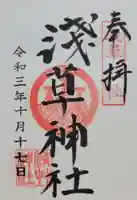 奉拝
浅草神社
令和三年十月十七日